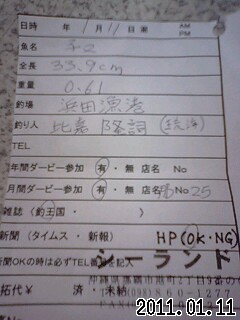 日時 年 1月 11日 潮 AM PM
魚名 チヌ
全長 33.9cm
重量 0.61
釣場 浜田漁港
釣り人 比嘉 隆詞
TEL
年間ダービー参加 有・無 店名 No
月間ダービー参加 有・無 店名 No 25
雑誌 (釣王国・ )
新聞 (タイムス・新報) HP(OK・NG)
新聞OKの時は必ずTEL番号を記入
シーランド
沖縄県浦添市港町2丁目9番の
拓代 ¥ 済・未納 TEL(098)860-1277
FAX(
2011.01.11